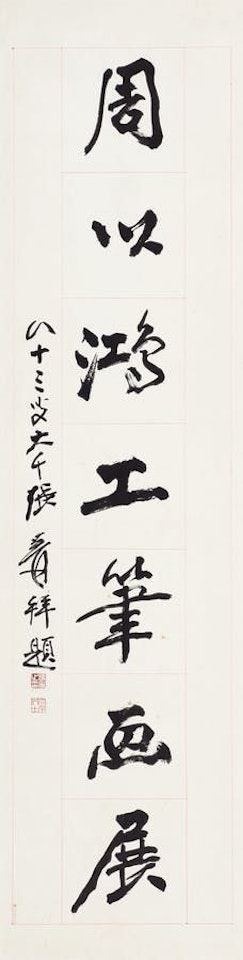 周以鴻工筆畫展
八十三叟大千張爰拜題